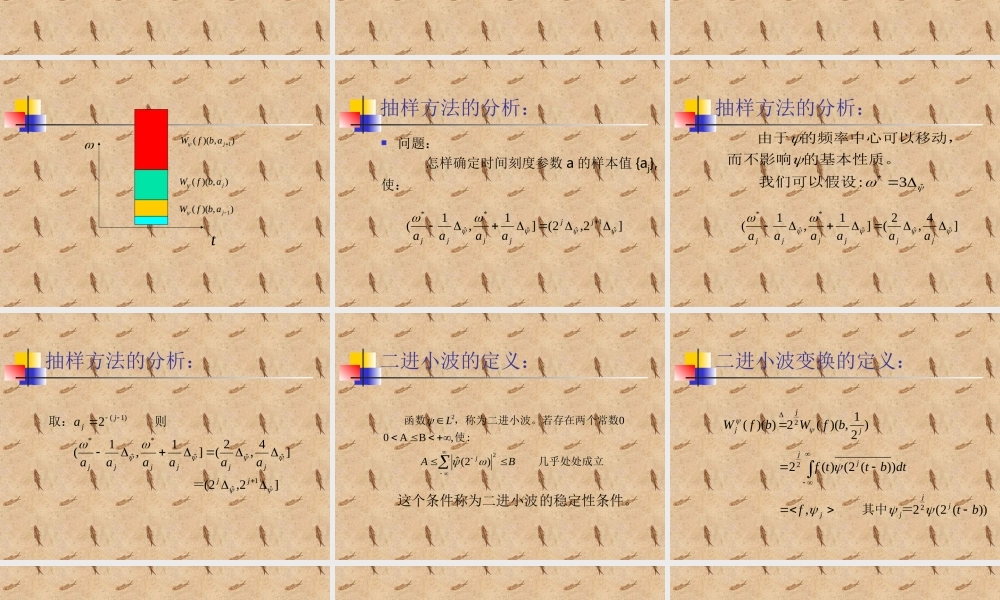 ω
W_ψ(f)(b,a_{j+1})
W_ψ(f)(b,a_j)
W_ψ(f)(b,a_{j-1})
t
抽样方法的分析：
问题：
怎样确定时间刻度参数 a 的样本值 {a_j},
使：
(ω*/a_j − 1/a_j Δ_ψ̂, ω*/a_j + 1/a_j Δ_ψ̂] = (2^j Δ_ψ̂, 2^{j+1} Δ_ψ̂]
抽样方法的分析：
由于ψ的频率中心可以移动，
而不影响ψ的基本性质。
我们可以假设：ω* = 3Δ_ψ̂
(ω*/a_j − 1/a_j Δ_ψ̂, ω*/a_j + 1/a_j Δ_ψ̂] = (2/a_j Δ_ψ̂, 4/a_j Δ_ψ̂]
抽样方法的分析：
取：a_j = 2^{-(j-1)} 则
(ω*/a_j − 1/a_j Δ_ψ̂, ω*/a_j + 1/a_j Δ_ψ̂] = (2/a_j Δ_ψ̂, 4/a_j Δ_ψ̂]
=(2^j Δ_ψ̂, 2^{j+1} Δ_ψ̂]
二进小波的定义：
函数ψ∈L²，称为二进小波。若存在两个常数0
0 A B ∞,使：
A ≤ ∑_{-∞}^{∞} |ψ̂(2^{-j}ω)|² ≤ B 几乎处处成立
这个条件称为二进小波的稳定性条件。
二进小波变换的定义：
W_j^ψ(f)(b) ≜ 2^{j/2} W_ψ(f)(b, 1/2^j)
= 2^{j/2} ∫_{-∞}^{∞} f(t) \overline{ψ(2^j(t−b))} dt
= <f,ψ_j> 其中ψ_j = 2^{j/2} ψ(2^j(t−b))